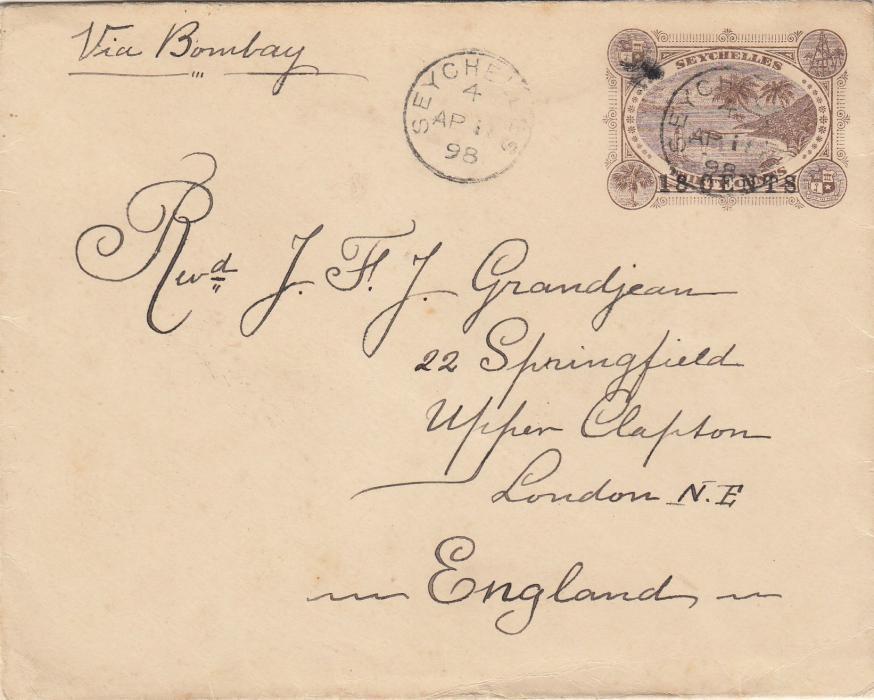 Via Bombay
SEYCHELLES
4
AP 11
98
SEYCHELLES
SEYCH
AP 11
98
18 CENTS
Revd J. F. J. Grandjean
22 Springfield
Upper Clapton
London N.E
England